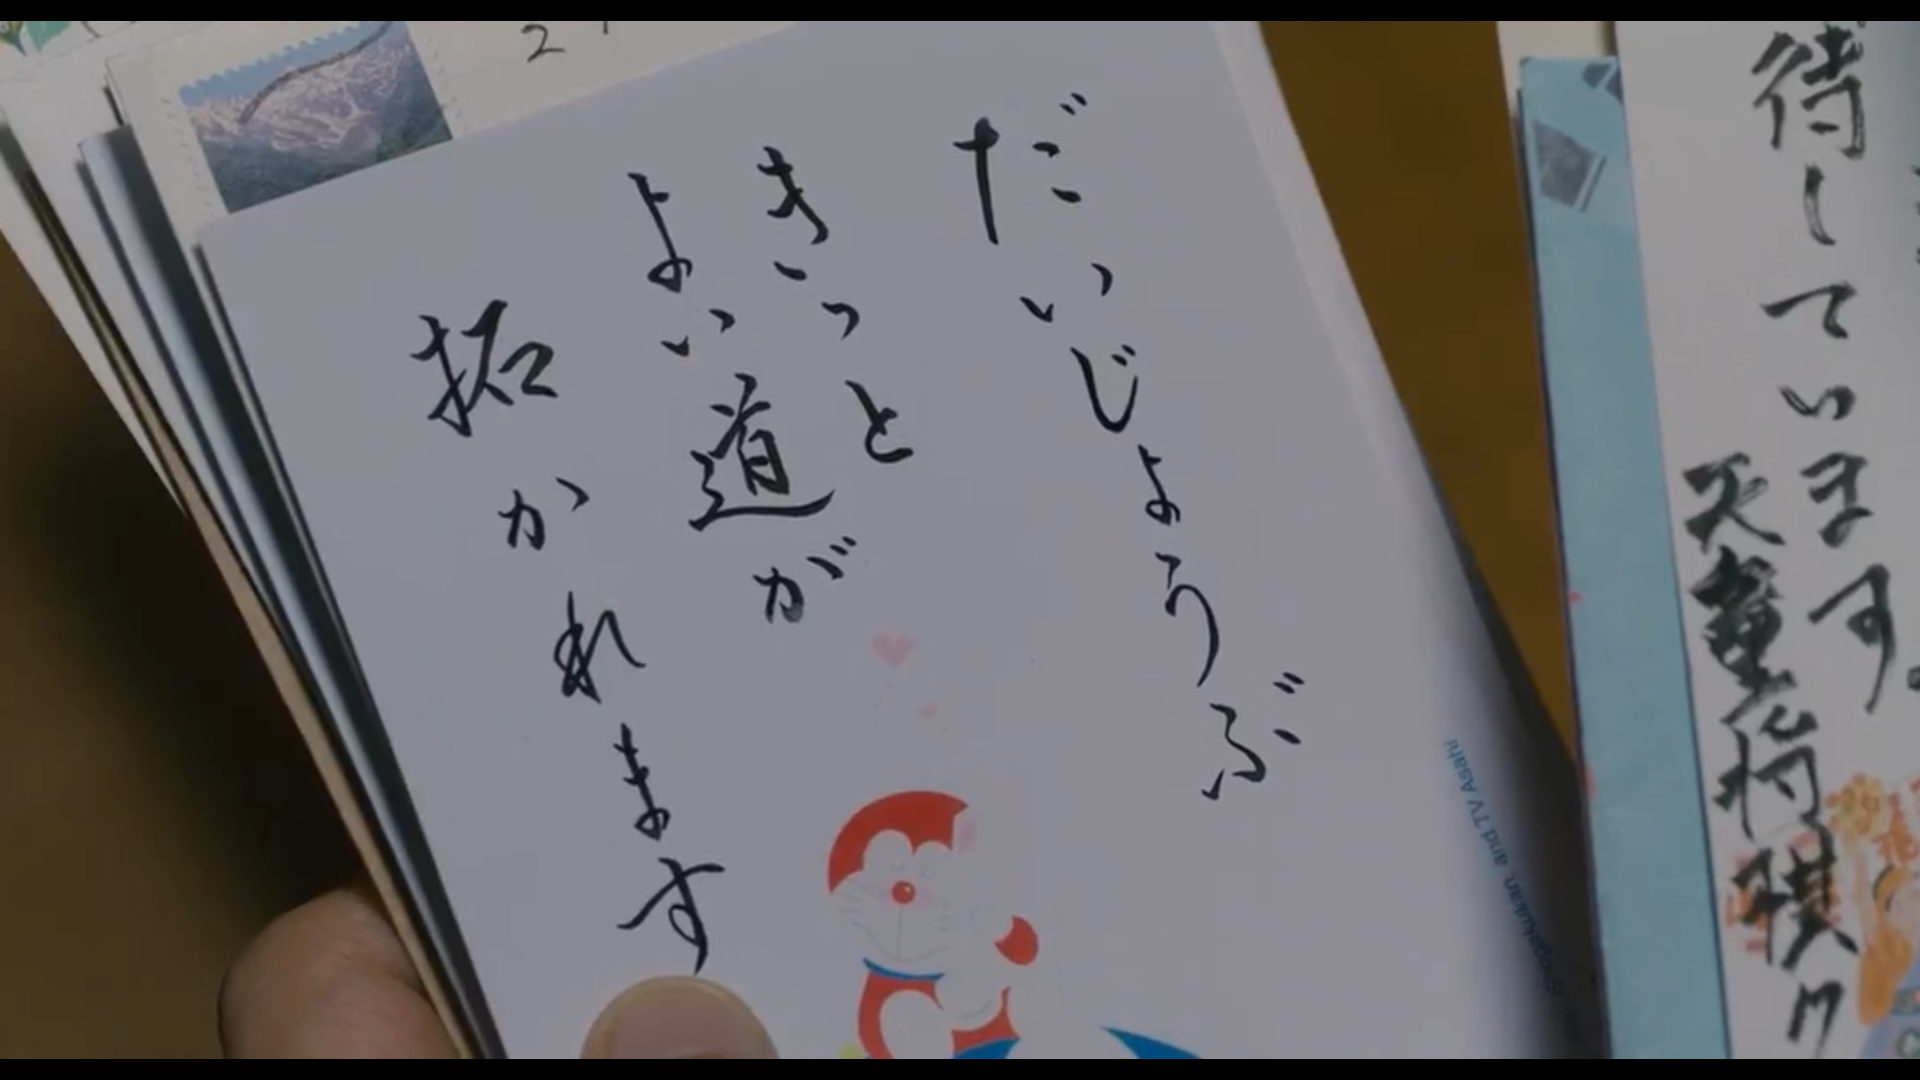 待しています。
天童将棋ク
だいじょうぶ
きっと
よい道が
拓かれます
and TV Asahi
2